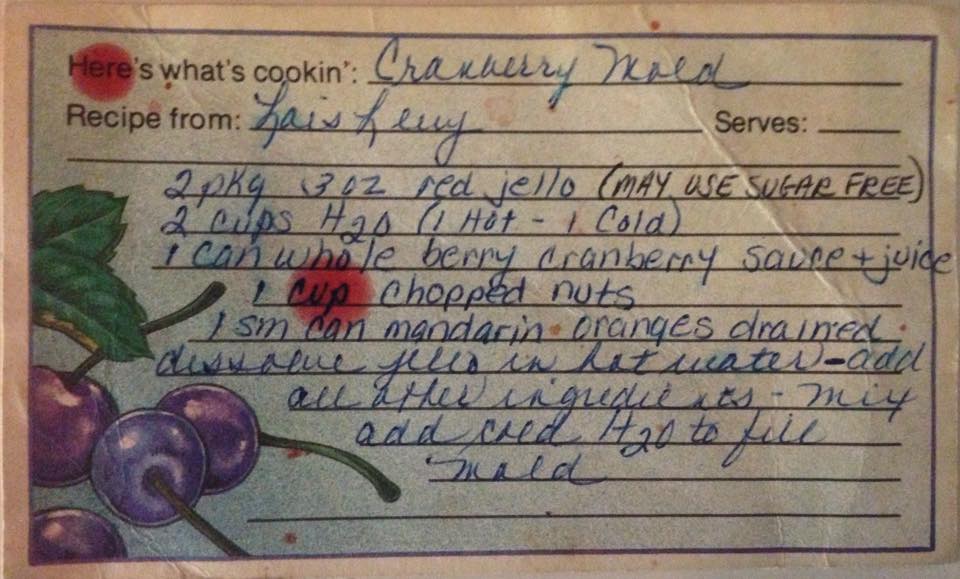 Here's what's cookin': Cranberry Mold
Recipe from: Lois Levy Serves:
2 pkg 3 oz red jello (MAY USE SUGAR FREE)
2 cups H2O (1 Hot - 1 Cold)
1 can whole berry cranberry sauce + juice
1 cup chopped nuts
1 sm can mandarin oranges drained
dissolve jello in hot water - add
all other ingredients - mix
add cold H2O to fill
mold